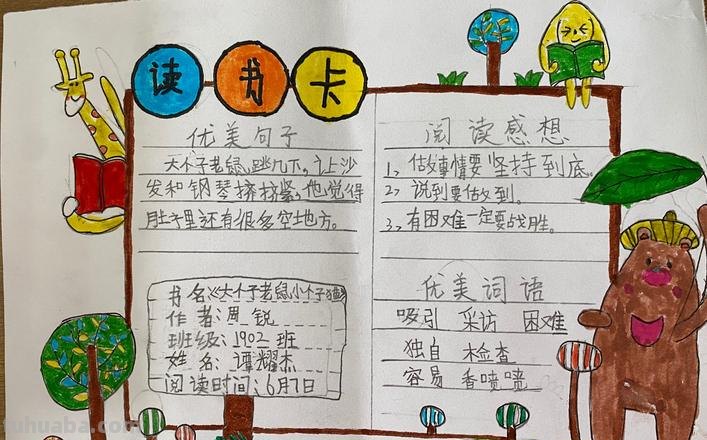 读书卡
优美句子
大个子老鼠跳几下，让沙
发和钢琴挤挤紧，他觉得
肚子里还有很多空地方。
书名《大个子老鼠小个子猫》
作者：周锐
班级：1902班
姓名：谭耀杰
阅读时间：6月7日
阅读感想
1、做事情要坚持到底。
2、说到要做到。
3、有困难一定要战胜。
优美词语
吸引 采访 困难
独自 检查
容易 香喷喷
tuhuaba.com